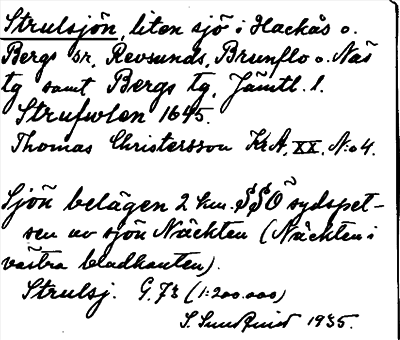 Strulsjön, liten sjö i Hackås o.
Bergs sr, Revsunds, Brunflo o. Näs
tg samt Bergs tg, Jämtl. l.
Strufwlen 1645.
Thomas Christersson KrA, XX, N:o 4.
Sjön belägen 2 km. SSÖ sydspet-
sen av sjön Näckten (Näckten i
västra bladkanten).
Strulsj. G. 73 (1:200.000)
S. Sundqvist 1935.